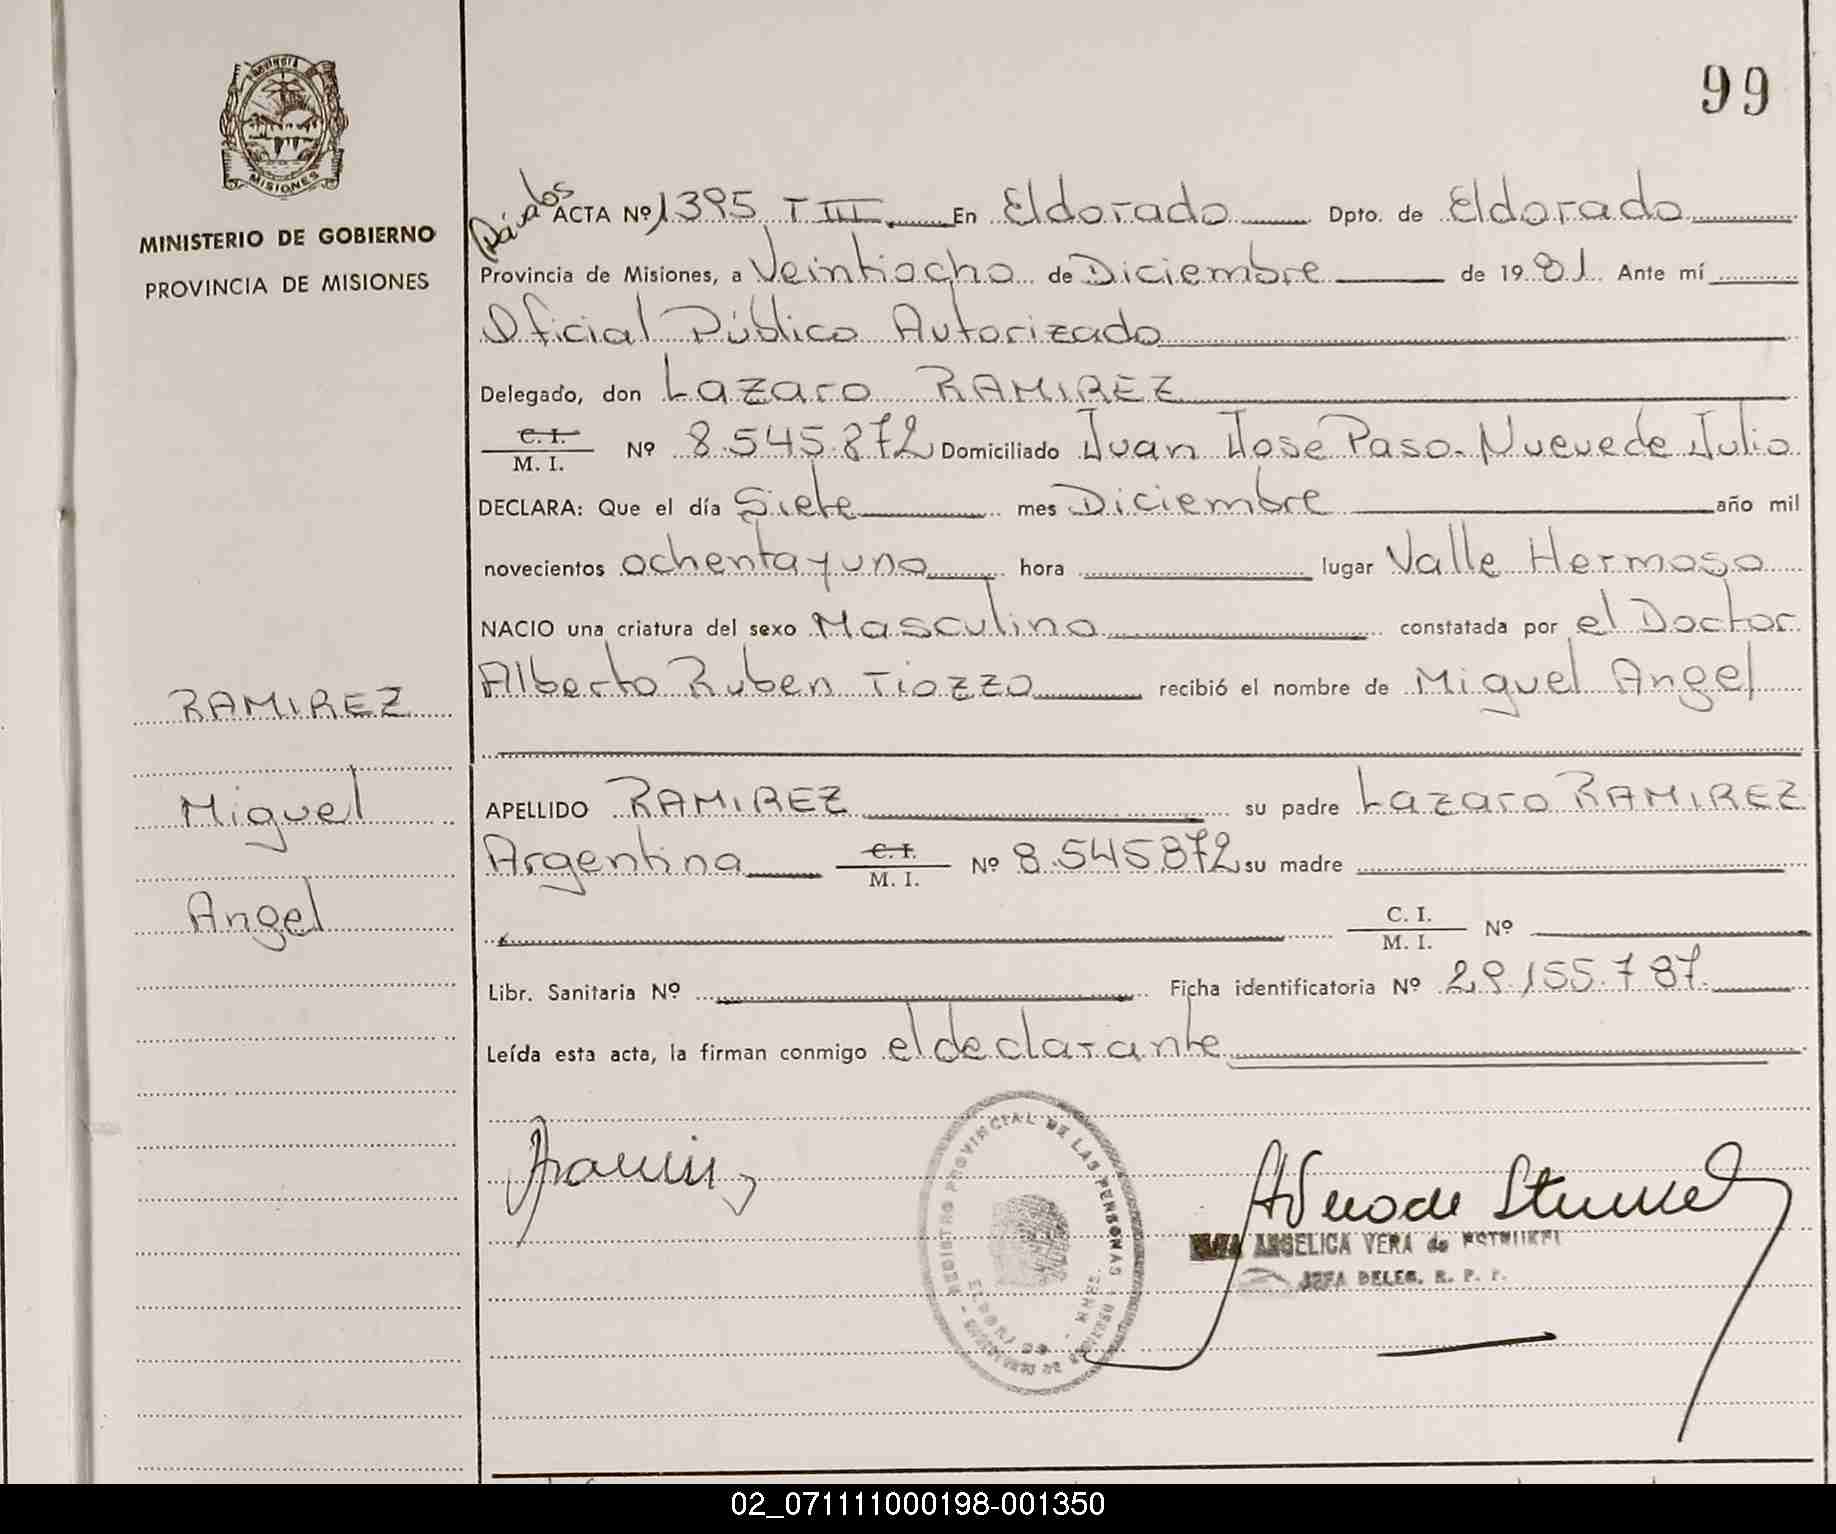 99
PROVINCIA
MISIONES
MINISTERIO DE GOBIERNO
PROVINCIA DE MISIONES
ACTA Nº 1395 T III En Eldorado Dpto. de Eldorado
Provincia de Misiones, a Veintiocho de Diciembre de 1981 Ante mí
Oficial Público Autorizado
Delegado, don Lazaro RAMIREZ
C. I. / M. I. Nº 8.545.872 Domiciliado Juan Jose Paso. Nueve de Julio
DECLARA: Que el día Siete mes Diciembre año mil
novecientos ochenta y uno hora lugar Valle Hermoso
NACIO una criatura del sexo Masculino constatada por el Doctor
Alberto Ruben Tiozzo recibió el nombre de Miguel Angel
RAMIREZ
Miguel
Angel
APELLIDO RAMIREZ su padre Lazaro RAMIREZ
Argentina C. I. / M. I. Nº 8.545.872 su madre
C. I. / M. I. Nº
Libr. Sanitaria Nº Ficha identificatoria Nº 29.155.787.
Leída esta acta, la firman conmigo el declarante
REGISTRO PROVINCIAL DE LAS PERSONAS
ELDORADO - MNES.
ANGELICA VERA de
JEFA DELEG. R. P. P.
02_071111000198-001350